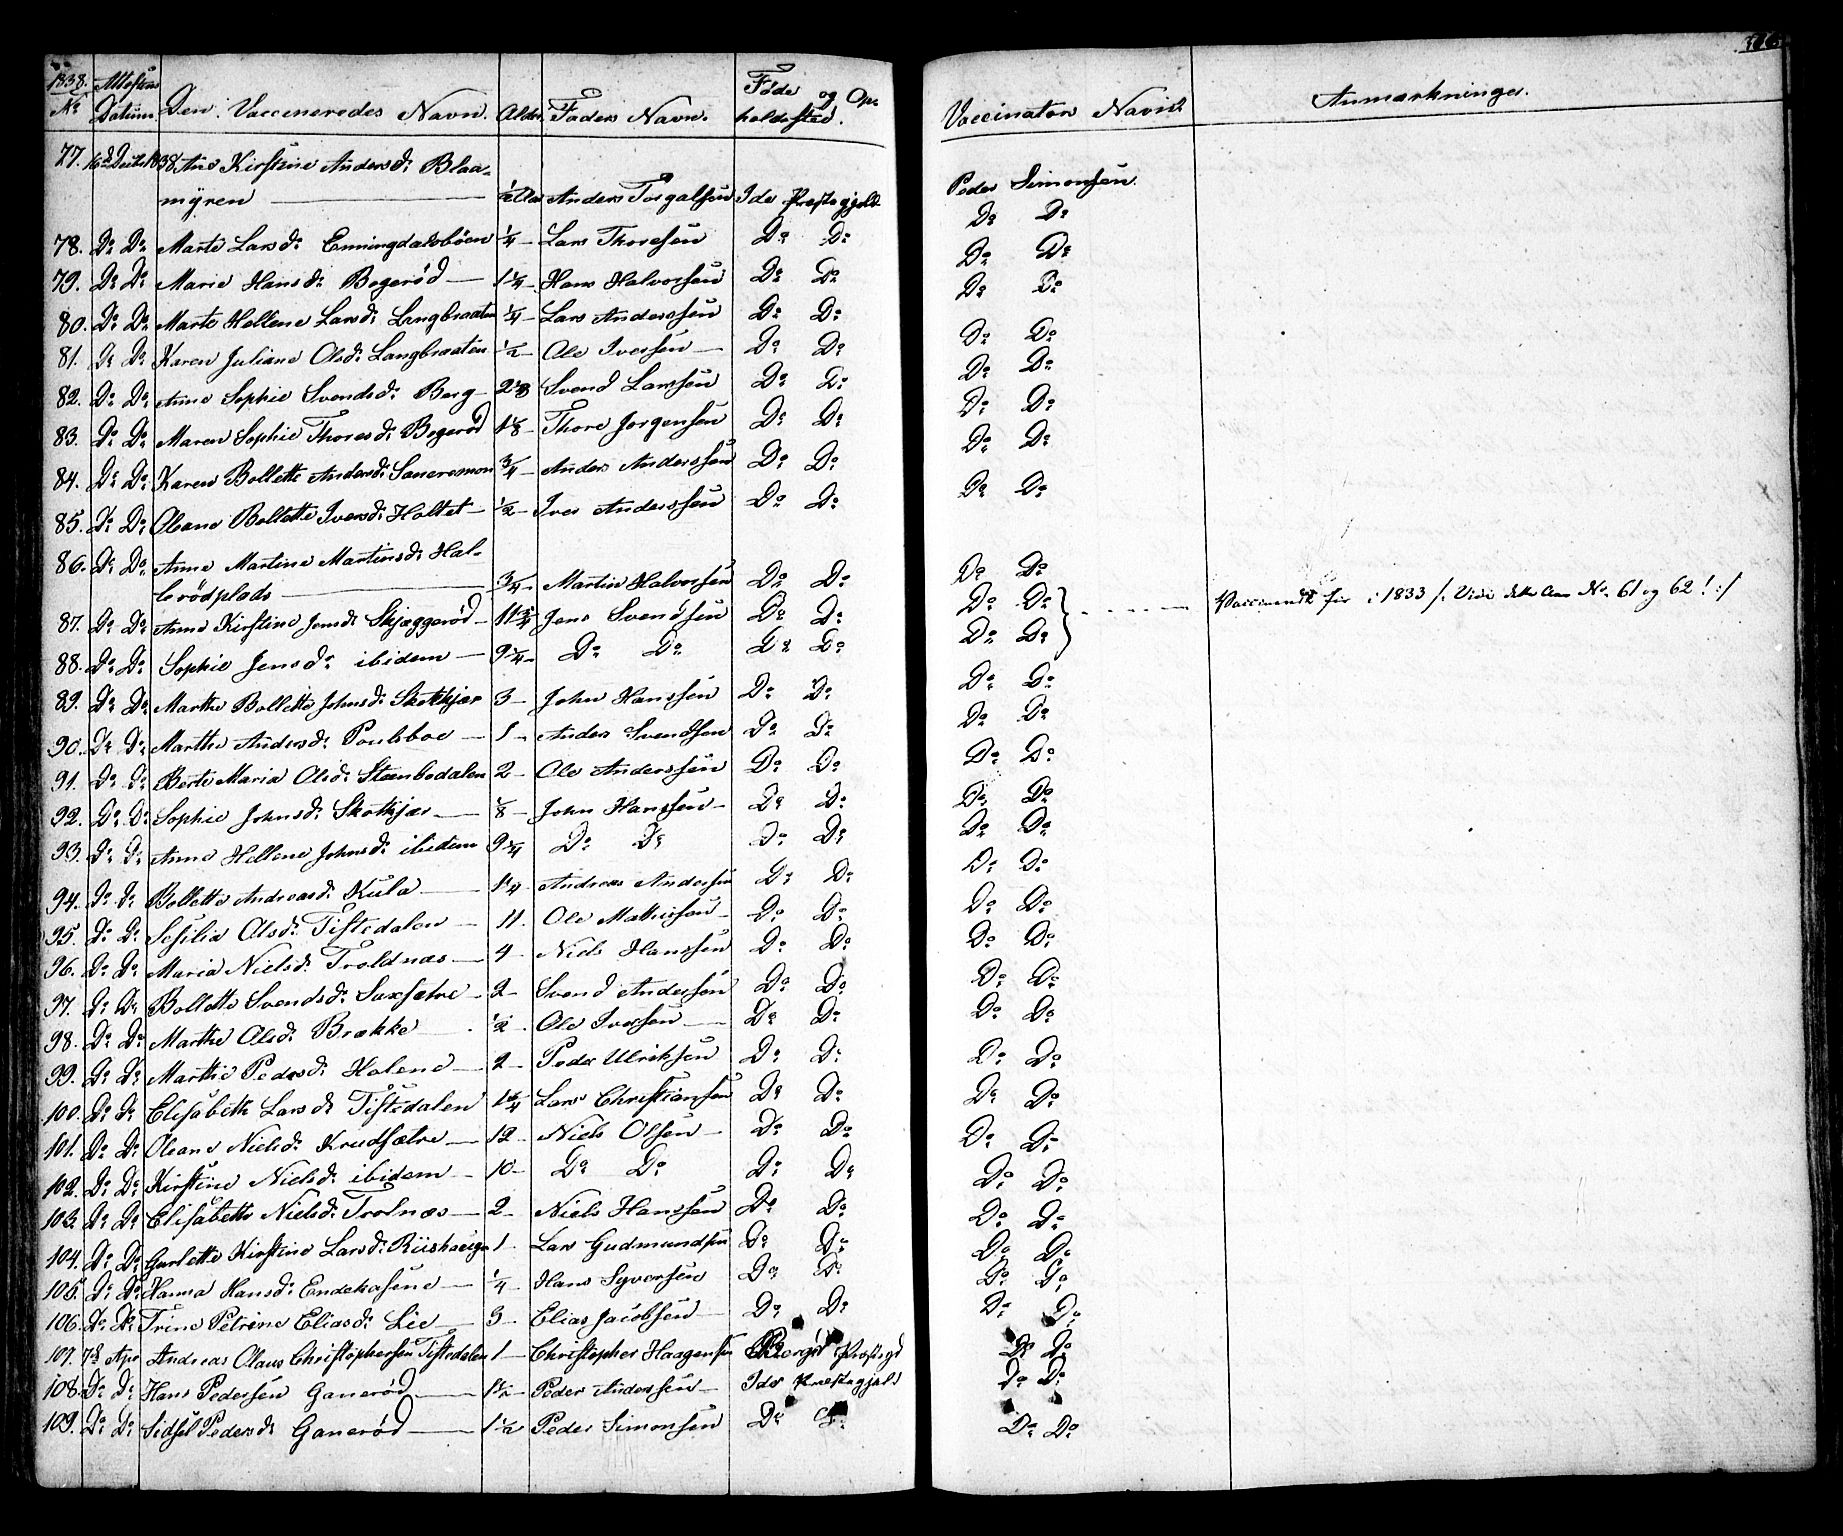 1838. Attestens Föde og Op-
No Datum Den Vaccineredes Navn. Alder. Faders Navn. holdssted. Vaccinators Navn Anmærkninger.
77. 16de Decbr 1838 Ane Kirstine Andersd: Blaa-
myren ½ Aar Anders Torgalsen Ide Præstegjeld Peder Simonsen.
78. Do Do Marte Larsd: Enningdalsböen ¼ Lars Thoresen Do Do Do Do
79. Do Do Marie Hansd: Bogeröd 1¼ Hans Halvorsen Do Do Do Do
80. Do Do Marte Hellene Larsd: Langbraaten ¼ Lars Anderssen Do Do Do Do
81. Do Do Karen Juliane Olsd: Langbraaten ½ Ole Iversen Do Do Do Do
82. Do Do Anne Sophie Svendsd: Berg 2⅛ Svend Larssen Do Do Do Do
83. Do Do Maren Sophie Thoresd: Bogeröd 1⅛ Thore Jorgensen Do Do Do Do
84. Do Do Karen Bollette Andersd: ¾ Anders Anderssen Do Do Do Do
85. Do Do Oleane Bollette Iversd: Holtet ½ Iver Anderssen Do Do Do Do
86. Do Do Anne Martine Martinsd: Hal-
brödplads ¾ Martin Halvorsen Do Do Do Do
87. Do Do Anne Kirstine Jensd: Skjæggeröd 11¾ Jens Svendsen Do Do Do Do Vaccineredt før i 1833 /: Vide dette Aar No. 61 og 62! :/
88. Do Do Sophie Jensd: ibidem 9¼ Do Do Do Do Do Do
89. Do Do Marthe Bollette Johnsd: Skotkjær 3 John Hanssen Do Do Do Do
90. Do Do Marthe Andersd: Poulsboe 1 Anders Svendsen Do Do Do Do
91. Do Do Berte Maria Olsd: Steenbodalen 2 Ole Anderssen Do Do Do Do
92. Do Do Sophie Johnsd: Skotkjær ⅛ John Hanssen Do Do Do Do
93. Do Do Anne Hellene Johnsd: ibidem 9¼ Do Do Do Do Do Do
94. Do Do Bollette Andreasd: Kula 1¼ Andreas Andersen Do Do Do Do
95. Do Do Sesilia Olsd: Tistedalen 11 Ole Mathissen Do Do Do Do
96. Do Do Maria Nielsd: Troldnæs 4 Niels Hanssen Do Do Do Do
97. Do Do Bollette Svendsd: Saxsætre 2 Svend Andersen Do Do Do Do
98. Do Do Marthe Olsd: Brække ½ Ole Iversen Do Do Do Do
99. Do Do Marthe Pedersd: Holene 2 Peder Ulriksen Do Do Do Do
100. Do Do Elisabeth Larsd: Tistedalen 1¼ Lars Christiansen Do Do Do Do
101. Do Do Oleane Nielsd: Krudsætre 12 Niels Olsen Do Do Do Do
102. Do Do Kirstine Nielsd: ibidem 10 Do Do Do Do Do Do
103. Do Do Elisabeth Nielsd: Trolnæs 2 Niels Hanssen Do Do Do Do
104. Do Do Gurlette Kirstine Larsd: Riishauge 1 Lars Gudmundsen Do Do Do Do
105. Do Do Hanna Hansd: ¼ Hans Syversen Do Do Do Do
106. Do Do Trine Petrine Eliasd: Lie 3 Elias Jacobsen Do Do Do Do
107. 7de Apr Andreas Olaus Christophersen Tistedalen 1 Christopher Haagensen Præstgd Do Do
108. Do Do Hans Pedersen Ganeröd 1½ Peder Anderssen Ide Præstegjeld Do Do
109. Do Do Sidsel Pedersd: Ganeröd 1½ Peder Simonsen Do Do Do Do